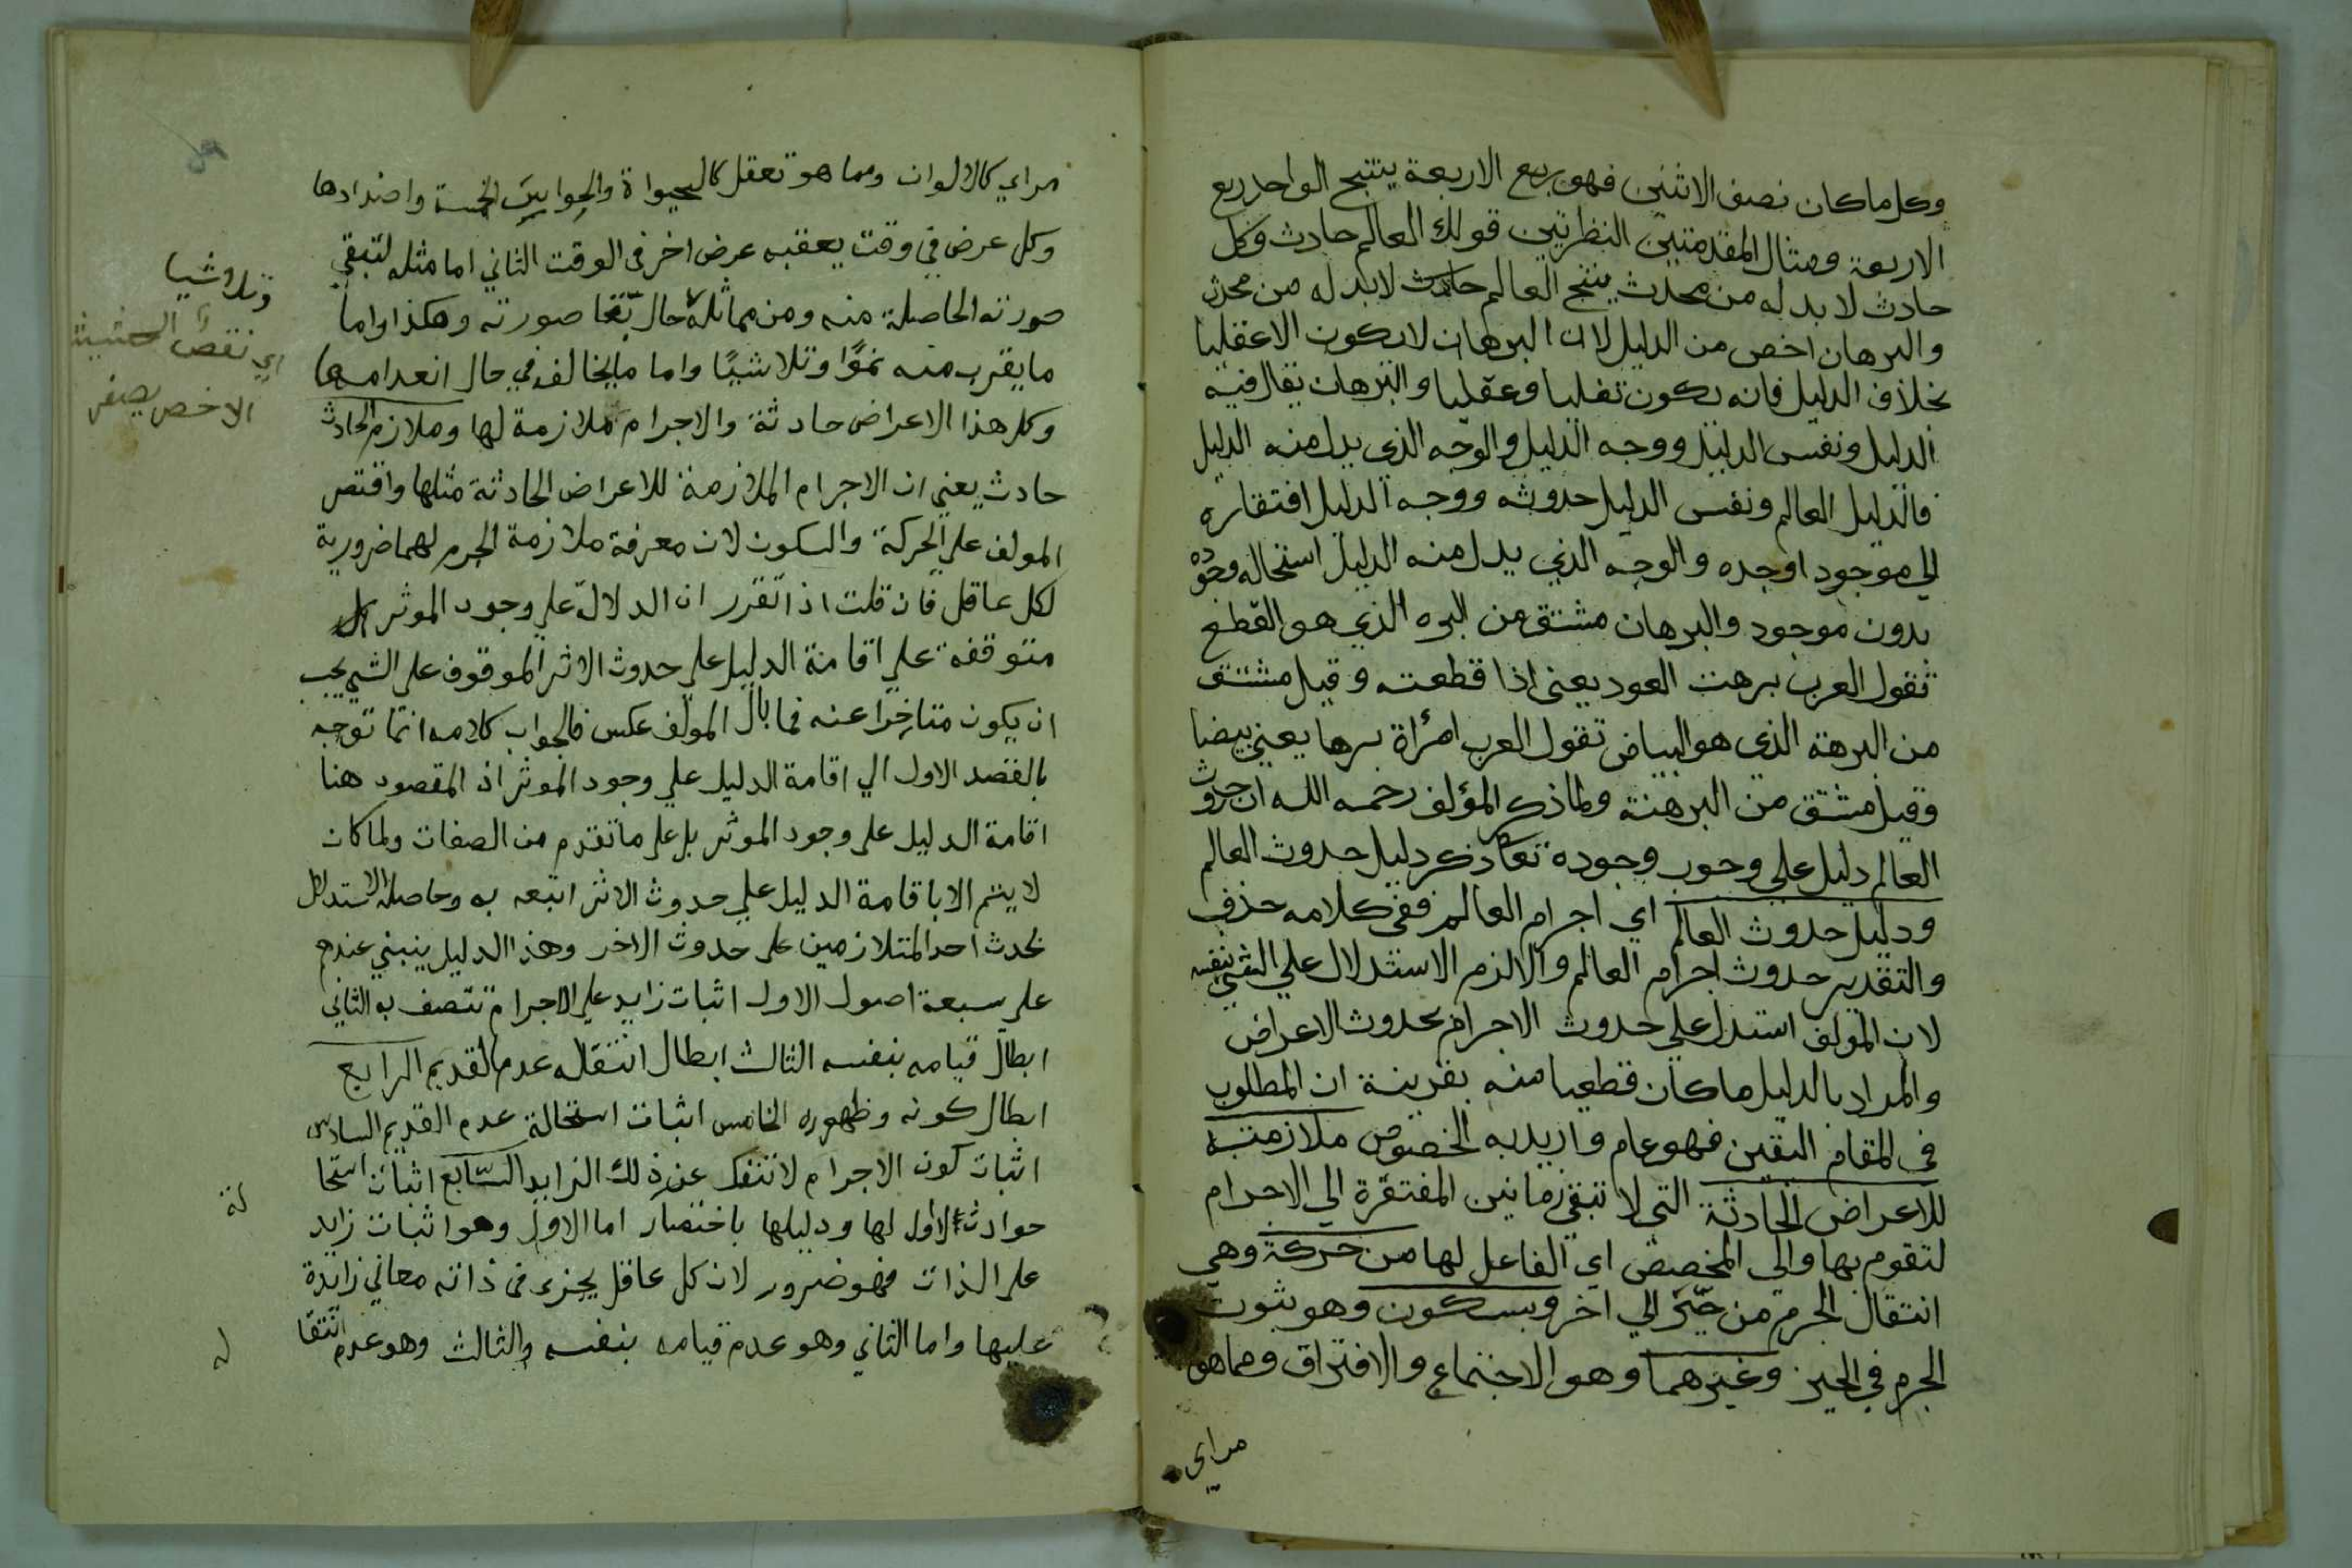 وكل ما كان نصف الاثنين فهو ربع الاربعة ينتج الواحد ربع
الاربعة ومثال المقدمتين النظريتين قولك العالم حادث وكل
حادث لا بد له من محدث ينتج العالم حادث لابد له من محدث
والبرهان اخص من الدليل لان البرهان لا يكون الا عقليا
بخلاف الدليل فانه يكون نقليا وعقليا والبرهان يقال فيه
الدليل ونفس الدليل ووجه الدليل والوجه الذي يدل منه الدليل
فالدليل العالم ونفس الدليل حدوثه ووجه الدليل افتقاره
الي موجود اوجده والوجه الذي يدل منه الدليل استحاله وجوده
بدون موجود والبرهان مشتق من البره الذي هو القطع
تقول العرب برهت العود يعني اذا قطعته وقيل مشتق
من البرهة الذي هو البياض تقول العرب امرأة برها يعني بيضا
وقيل مشتق من البرهنة ولما ذكر المؤلف رحمه الله ان حدوث
العالم دليل علي وجوب وجوده تعا ذكر دليل حدوث العالم
ودليل حدوث العالم اي اجرام العالم ففي كلامه حذف
والتقدير حدوث اجرام العالم والا لزم الاستدلال علي الشي بنفسه
لان المولف استدل علي حدوث الاجرام بحدوث الاعراض
والمراد بالدليل ما كان قطعيا منه بقرينة ان المطلوب
في المقام اليقين فهو عام واريد به الخصوص ملازمته
للاعراض الحادثة التي لا تبقي زمانين المفتقرة الي الاجرام
لتقوم بها والي المخصص اي الفاعل لها من حركة وهي
انتقال الجرم من حيز الي اخر وبسكون وهو ثبوت
الجرم في الحيز وغيرهما وهو الاجتماع والافتراق ومما هو
مراي
مراي كالالوان ومما هو تعقل كالحيواة والجوابين الخمسة واضدادها
وكل عرض في وقت يعقبه عرض اخر في الوقت الثاني اما مثله لتبقي
صورته الحاصلة منه ومن مماثله حال بقا صورته وهكذا واما
ما يقرب منه نموا وتلاشيا واما ما يخالفه في حال انعدامها
وكل هذا الاعراض حادثة والاجرام ملازمة لها وملازم الحادث
حادث يعني ان الاجرام الملازمة للاعراض الحادثة مثلها واقتصر
المولف علي الحركة والسكون لان معرفة ملازمة الجرم لهما ضرورية
لكل عاقل فان قلت اذا تقرر ان الدلالة علي وجود الموثر
متوقفة علي اقامة الدليل علي حدوث الاثر الموقوف علي الشي يجب
ان يكون متاخرا عنه فما بال المولف عكس فالجواب كلامه انما توجه
بالقصد الاول الي اقامة الدليل علي وجود الموثر اذ المقصود هنا
اقامة الدليل علي وجود الموثر بل علي ما تقدم من الصفات ولما كان
لا يتم الا باقامة الدليل علي حدوث الاثر اتبعه به وحاصله الاستدلال
بحدث احد المتلازمين علي حدوث الاخر وهذا الدليل ينبني عندهم
علي سبعة اصول الاول اثبات زايد علي الاجرام تتصف به الثاني
ابطال قيامه بنفسه الثالث ابطال انتقاله عدم القديم الرابع
ابطال كونه وظهوره الخامس اثبات استحالة عدم القديم السادس
اثبات كون الاجرام لا تنفك عن ذلك الزايد السابع اثبات استحا
لة
حوادث لا اول لها ودليلها باختصار اما الاول وهو اثبات زايد
علي الذات فهو ضرور لان كل عاقل يجزء في ذاته معاني زايدة
عليها واما الثاني وهو عدم قيامه بنفسه والثالث وهو عدم انتقا
له
وتلاشيا
اي نقص
الاخص يصفر